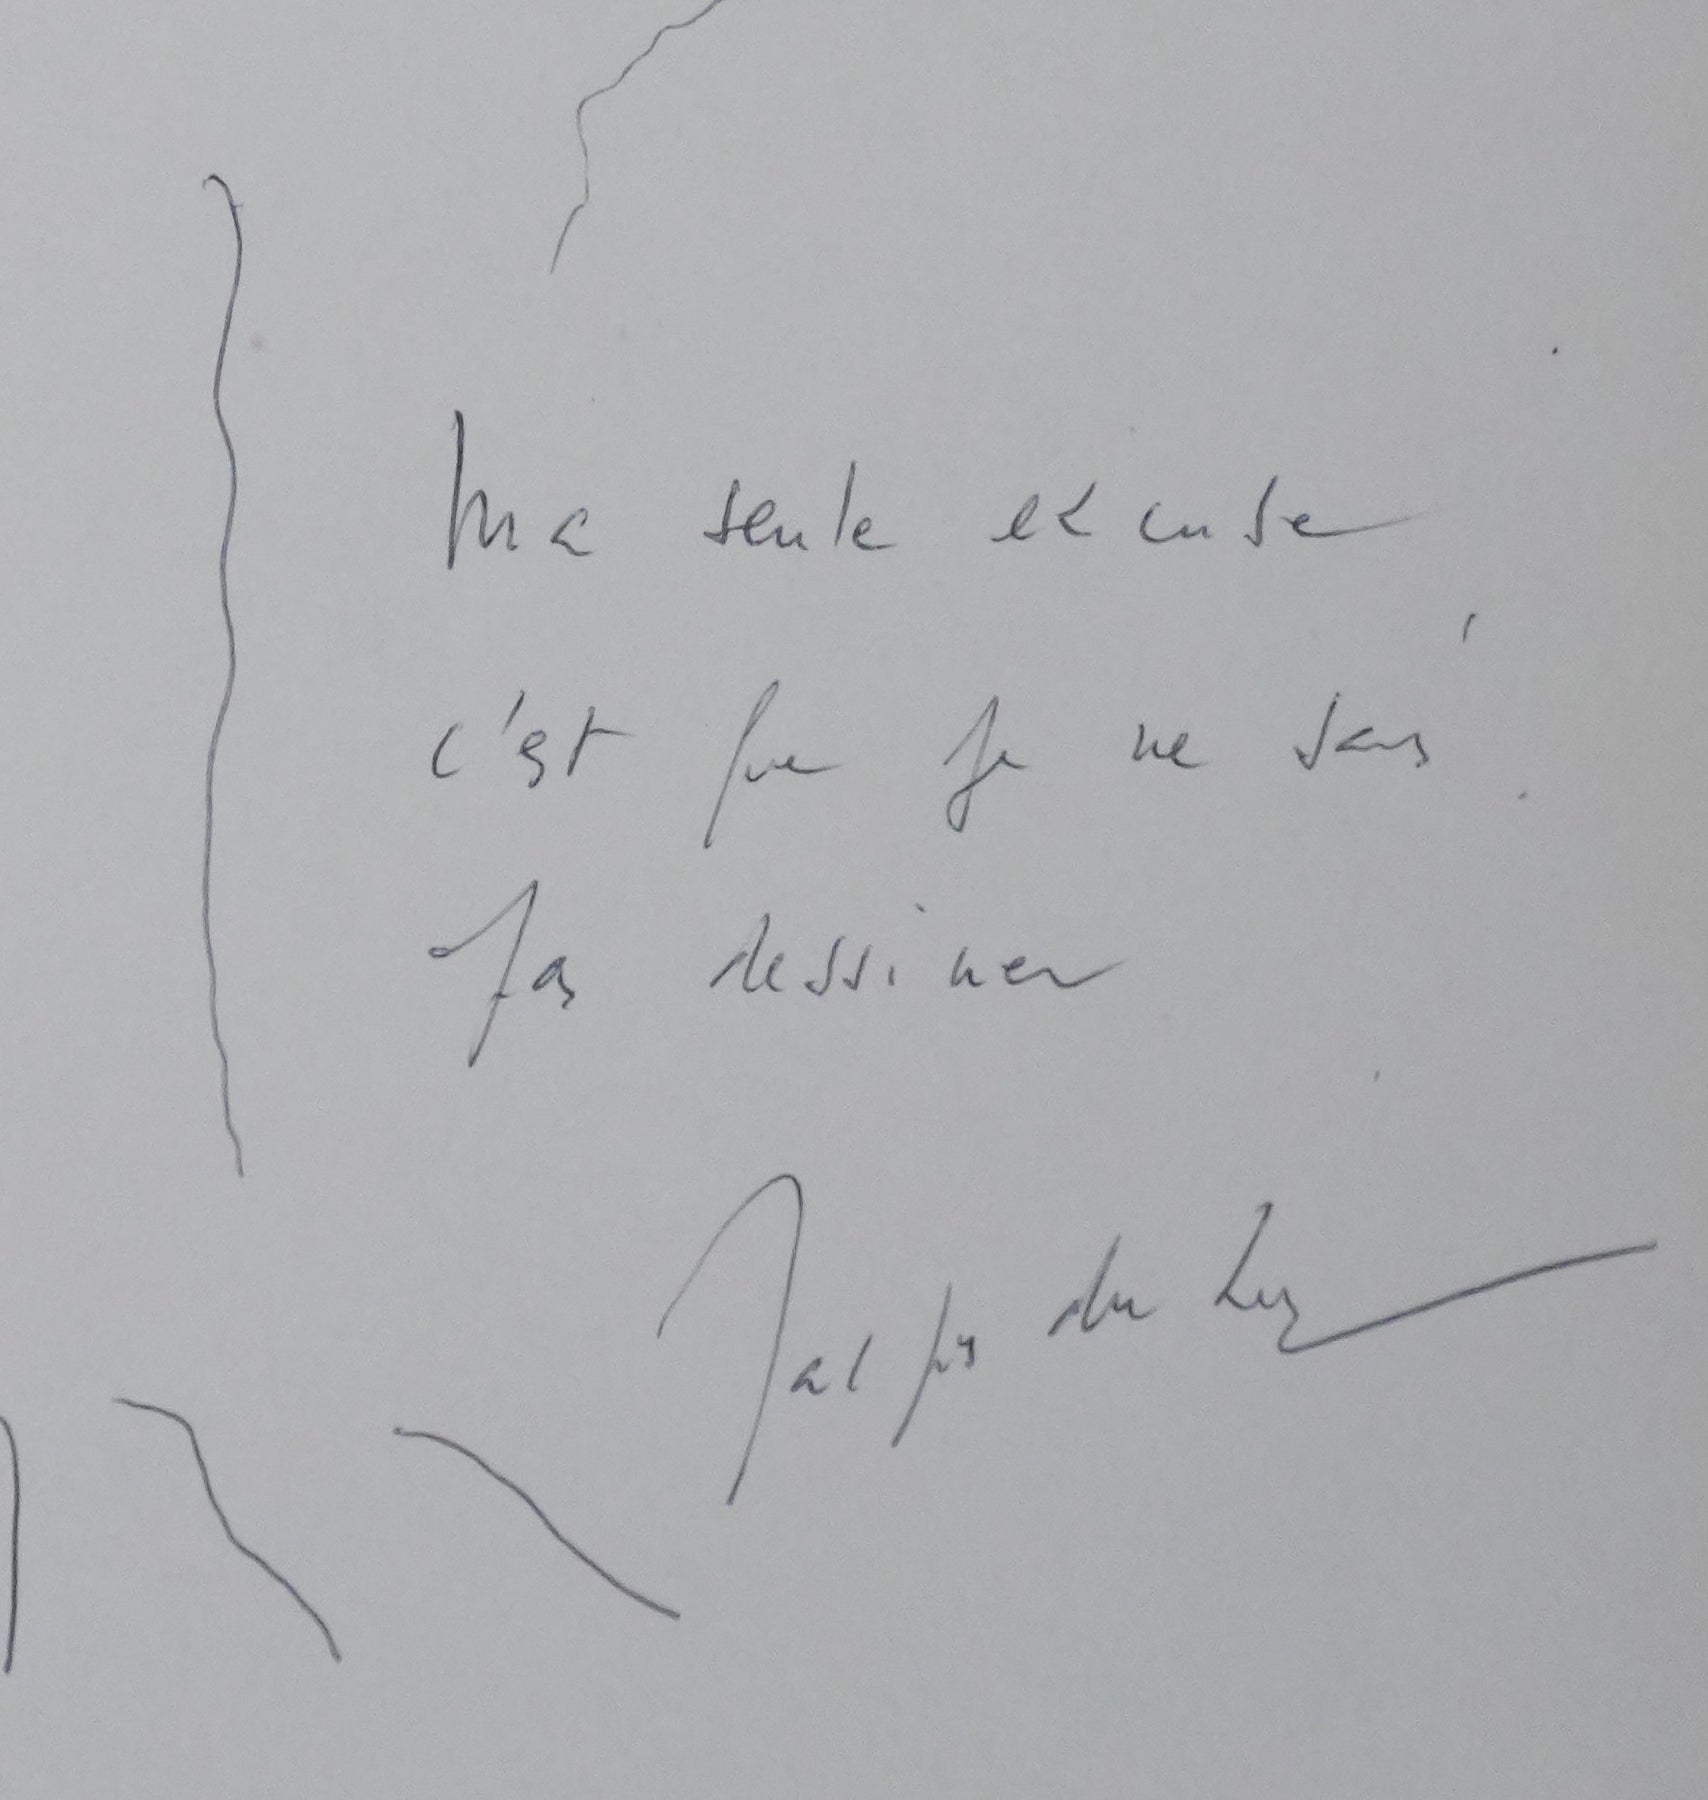 Ma seule excuse
c'est que je ne sais
pas dessiner
Jacques du